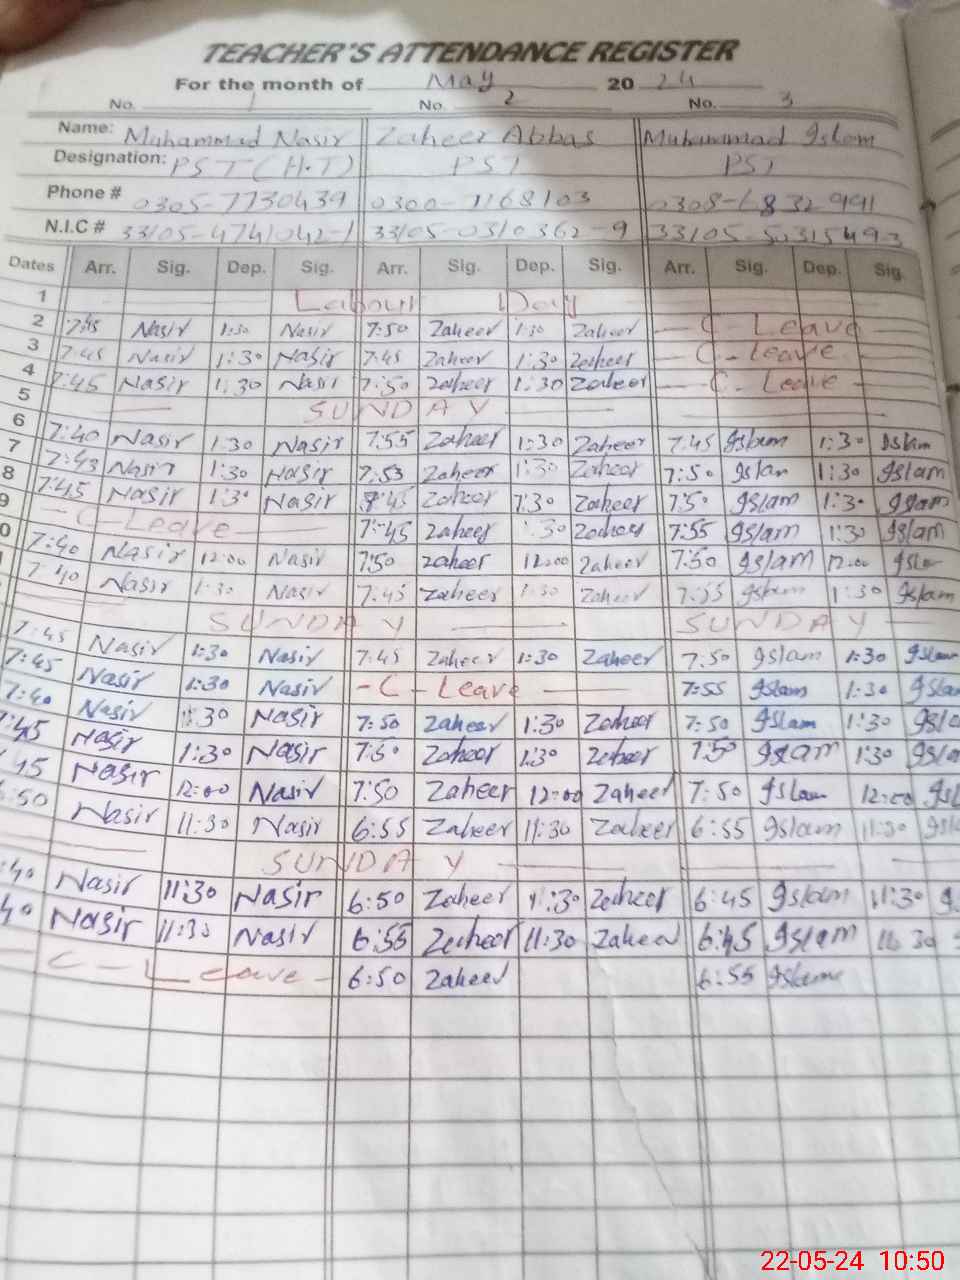 TEACHER'S ATTENDANCE REGISTER
For the month of May 20 24
No. 1 No. 2 No. 3
Name: Muhammad Nasir Zaheer Abbas Muhammad Islam
Designation: PST (H.T) PST PST
Phone # 0305-7730439 0300-7168103 0308-6832991
N.I.C # 33105-4741042-1 33105-0310362-9
Dates Arr. Sig. Dep. Sig. Arr. Sig. Dep. Sig. Arr. Sig. Dep. Sig.
1 Labour Day
2 7:45 Nasir 1:30 Nasir 7:50 Zaheer 1:30 Zaheer C Leave
3 7:45 Nasir 1:30 Nasir 7:45 Zaheer 1:30 Zaheer C - Leave
4 7:45 Nasir 1:30 Nasir 7:50 Zaheer 1:30 Zaheer C - Leave
5 SUNDAY
6 7:40 Nasir 1:30 Nasir 7:55 Zaheer 1:30 Zaheer 7:45 Islam 1:30 Islam
7 7:43 Nasir 1:30 Nasir 7:53 Zaheer 1:30 Zaheer 7:50 Islam 1:30 Islam
8 7:45 Nasir 1:30 Nasir 7:45 Zaheer 1:30 Zaheer 7:50 Islam 1:30 Islam
9 - C - Leave 7:45 Zaheer 1:30 Zaheer 7:55 Islam 1:30 Islam
0 7:40 Nasir 12:00 Nasir 7:50 Zaheer 12:00 Zaheer 7:50 Islam 12:00 Islam
7:40 Nasir 1:30 Nasir 7:45 Zaheer 1:30 Zaheer 7:55 Islam 1:30 Islam
SUNDAY SUNDAY
7:45 Nasir 1:30 Nasir 7:45 Zaheer 1:30 Zaheer 7:50 Islam 1:30 Islam
7:45 Nasir 1:30 Nasir - C - Leave 7:55 Islam 1:30 Islam
7:40 Nasir 1:30 Nasir 7:50 Zaheer 1:30 Zaheer 7:50 Islam 1:30 Isla
7:45 Nasir 1:30 Nasir 7:50 Zaheer 1:30 Zaheer 7:50 Islam 1:30 Isla
45 Nasir 12:00 Nasir 7:50 Zaheer 12:00 Zaheer 7:50 Islam 12:00 Isl
6:50 Nasir 11:30 Nasir 6:55 Zaheer 11:30 Zaheer 6:55 Islam 11:30 Isla
SUNDAY
:40 Nasir 11:30 Nasir 6:50 Zaheer 11:30 Zaheer 6:45 Islam 11:30
40 Nasir 11:30 Nasir 6:55 Zaheer 11:30 Zaheer 6:45 Islam 11 30
C - Leave - 6:50 Zaheer 6:55 Islam
22-05-24 10:50